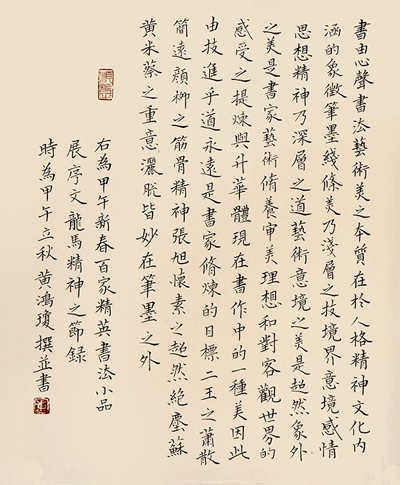 書由心聲書法藝術美之本質在於人格精神文化內
涵的象徵筆墨綫條美乃淺層之技境界意境感情
思想精神乃深層之道藝術意境之美是超然象外
之美是書家藝術脩養審美理想和對客觀世界的
感受之提煉與升華體現在書作中的一種美因此
由技進乎道永遠是書家脩煉的目標二王之蕭散
簡遠顔柳之筋骨精神張旭懷素之超然絕塵蘇
黄米蔡之重意灑脫皆妙在筆墨之外
右為甲午新春百家精英書法小品
展序文龍馬精神之節錄
時為甲午立秋黄鴻瓊撰並書